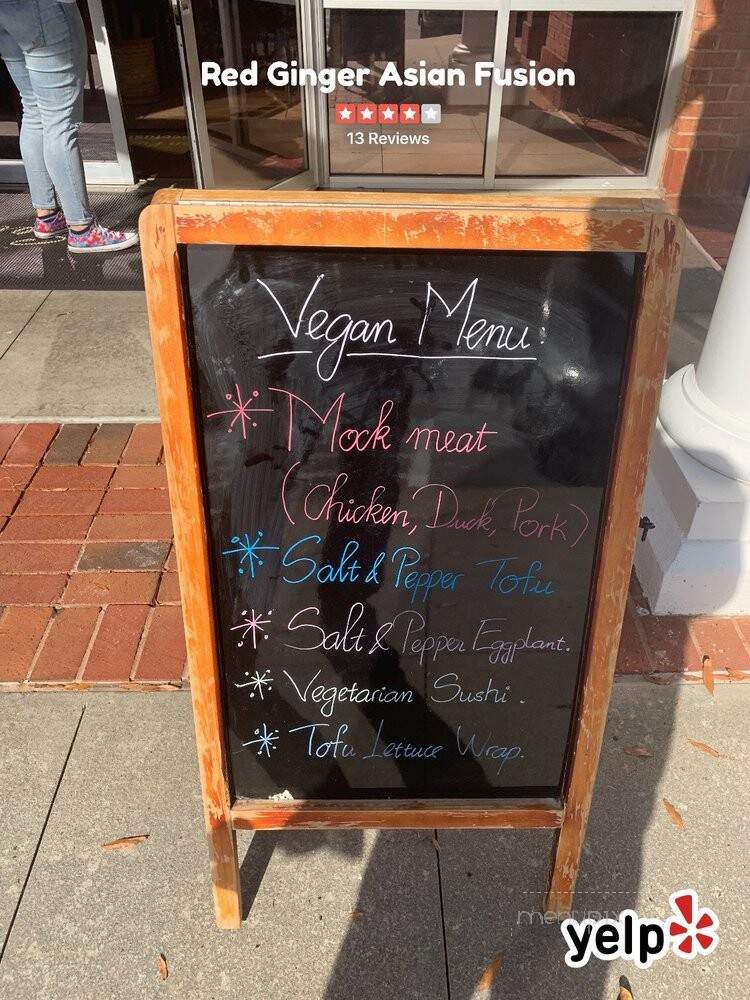 Red Ginger Asian Fusion
13 Reviews
Vegan Menu:
Mock meat
(Chicken, Duck, Pork)
Salt & Pepper Tofu
Salt & Pepper Eggplant.
Vegetarian Sushi.
Tofu Lettuce Wrap.
yelp